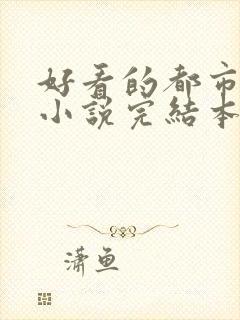 好看的都市
小说完结本
潇鱼